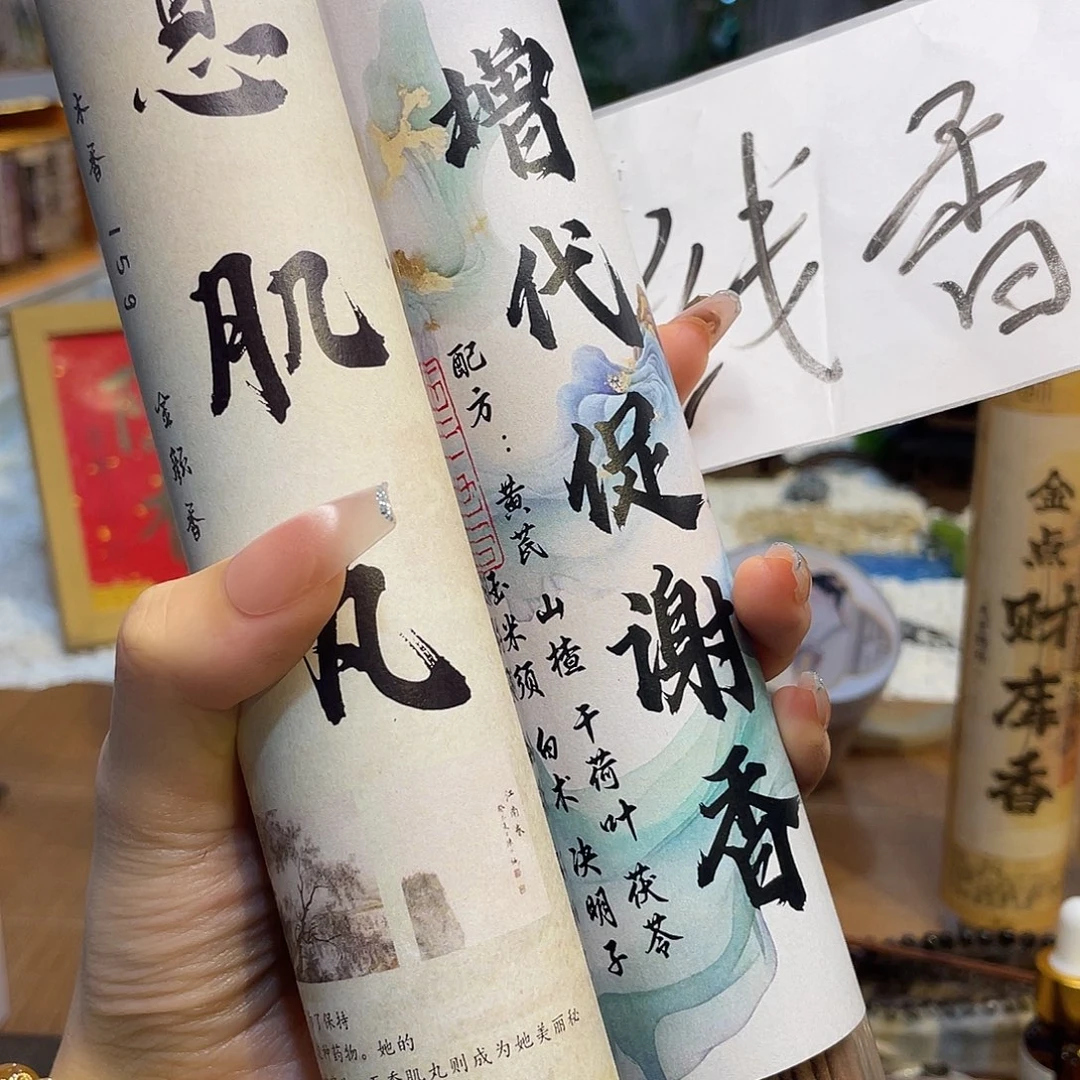 息
肌
丸
木香 159
金颜香
江南春
了保持
种药物。她的
香肌丸则成为她美丽秘
增代促谢香
配方：黄芪 山楂 干荷叶 茯苓
玉米须 白术 决明子
线香
金点财库香